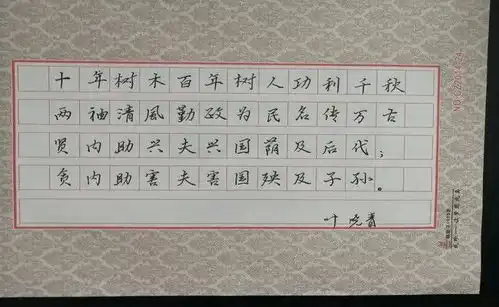 十年树木百年树人功利千秋
两袖清風勤政为民名传万古
贤内助兴夫兴国荫及后代；
贪内助害夫害国殃及子孙。
叶晓青